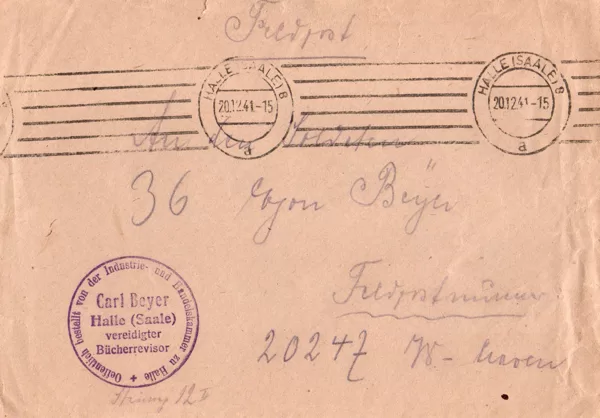 Feldpost
HALLE (SAALE) 8
20.12.41.-15
a
HALLE (SAALE) 8
20.12.41.-15
a
An den Soldaten
36 Egon Beyer
Feldpostnummer
20247 W-haven
Oeffentlich bestellt von der Industrie- und Handelskammer zu Halle +
Carl Beyer
Halle (Saale)
vereidigter
Bücherrevisor